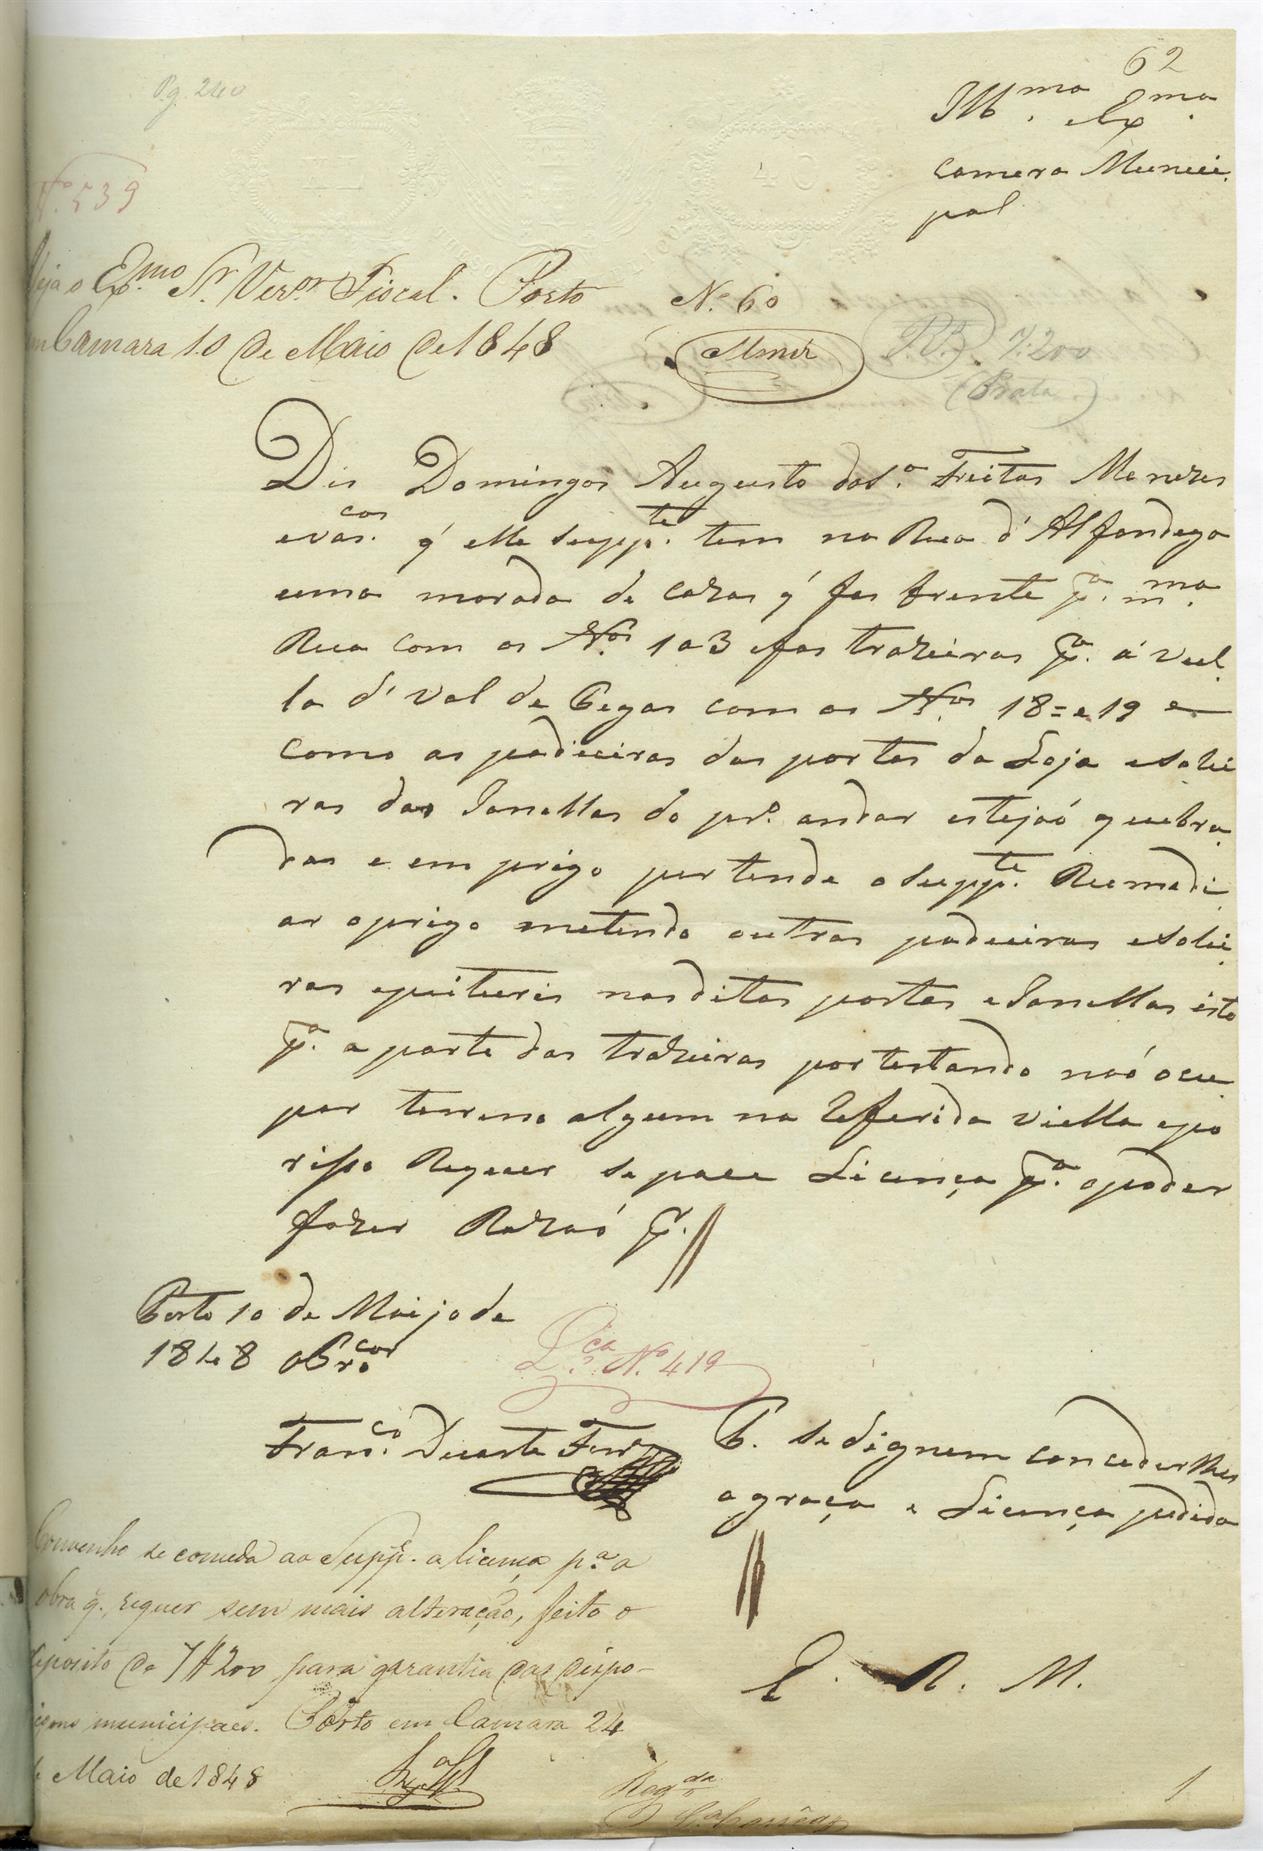 62
Pg. 240
Illma. Exma.
Camera Munici
pal
Nº. 539
Veja o Exmo Sr. Veror Fiscal. Porto
em Camara 10 de Maio de 1848
No. 60
7:200
(Prata)
Dis Domingos Augusto da Sa. Freitas Menezes
evascos. q' elle suppte. tem na Rua d'Alfandega
uma morada de cazas q' fas frente pa. mma.
Rua com os Nos. 1 a 3 e fas trazeiras pa. a' viel
la d' Val de Pegas com os Nos. 18 = e 19 e
como as padieiras das portas da Loja e solei
ras das Janellas do pro. andar estejaó quebra
das e em prigo pertende o suppte. Remedi
ar o prigo metendo outras padieiras e solei
ras e nas ditas portas e Janellas isto
pa. a parte das trazeiras portestando naó ocu
par terreno algum na Referida viella e po
risso Requer se pace Licença pa. o poder
fazer Razaó pr.
Porto 10 de Maijo de
1848
Lca. No. 419
Franco. Duarte Ferra
P. se dignem conceder lhes
a graça e Licença pedida
Convenho se conceda ao Suppe. a licença pa. a
obra q. requer sem mais alteração, feito o
deposito de 7$200 para garantia das dispo-
içoens municipaes. Porto em Camara 24
de Maio de 1848
E. R. M.
Regda
1